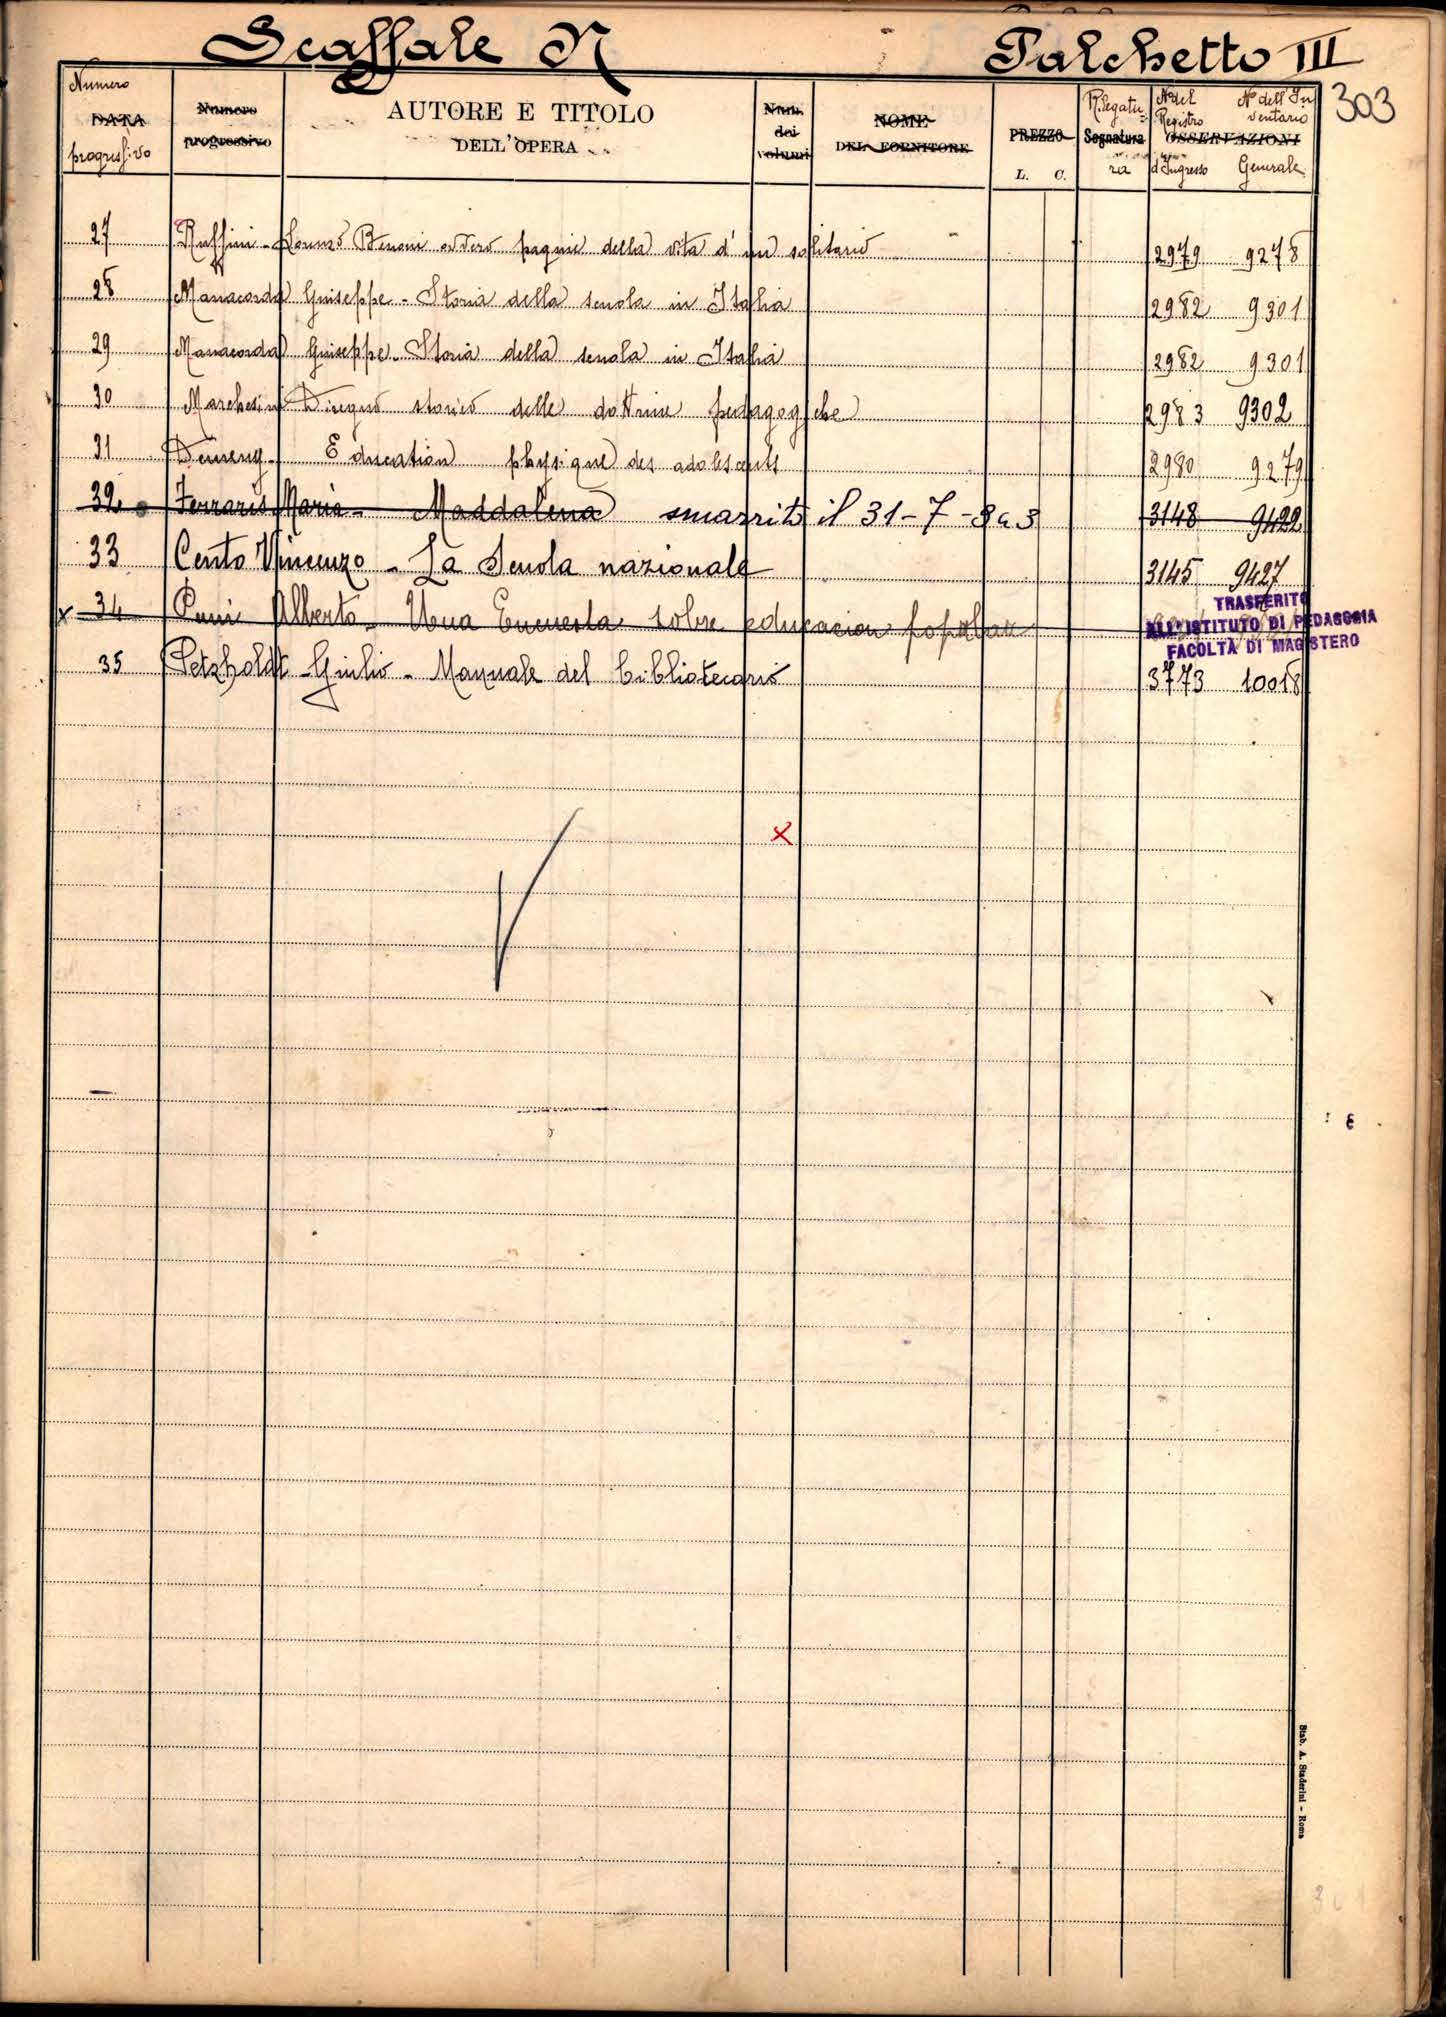 Scaffale N Palchetto III
303
Numero DATA progressivo
Numero progressivo
AUTORE E TITOLO
DELL'OPERA
Num. dei volumi
NOME
DEL FORNITORE
PREZZO
L. C.
Rilegatu= Segnatura ra
N° del Registro d'Ingresso
N° dell'In ventario Generale
OSSERVAZIONI
27 Ruffini - Lorenzo Benoni ovvero pagine della vita d'un solitario 2979 9278
28 Manacorda Giuseppe - Storia della scuola in Italia 2982 9301
29 Manacorda Giuseppe - Storia della scuola in Italia 2982 9301
30 Marchesini Disegno storico delle dottrine pedagogiche 2983 9302
31 Demeny - Education physique des adolescents 2980 9279
32 Ferraris Maria - Maddalena smarrito il 31-7-3 3148 9422
33 Cento Vincenzo - La Scuola nazionale 3145 9427
x 34 Alberto - Una Encuesta sobre educacion popular
TRASFERITO
ALL'ISTITUTO DI PEDAGOGIA
FACOLTÀ DI MAGISTERO
35 Petzholdt - Giulio - Manuale del bibliotecario 3773 10018
x
Stab. A. Staderini - Roma